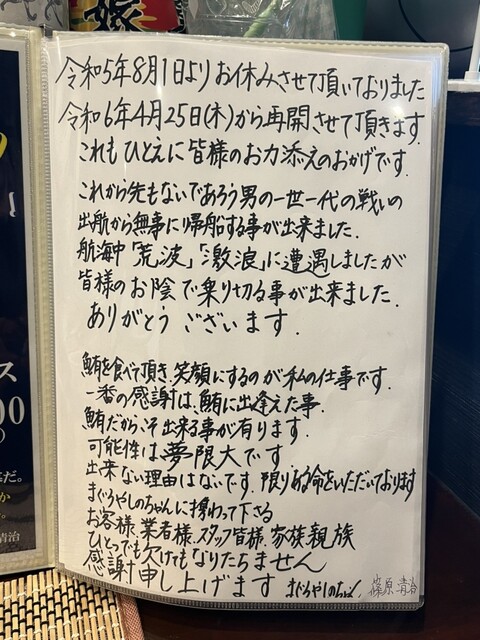 令和5年8月1日よりお休みさせて頂いておりました
令和6年4月25日(木)から再開させて頂きます
これもひとえに皆様のお力添えのおかげです.
これから先もないであろう男の一世一代の戦いの
出航から無事に帰船する事が出来ました.
航海中「荒波」「激浪」に遭遇しましたが
皆様のお陰で乗り切る事が出来ました.
ありがとうございます.
鮪を食べて頂き、笑顔にするのが私の仕事です.
一番の感謝は、鮪に出逢えた事.
鮪だからこそ出来る事が有ります.
可能性は夢限大です
出来ない理由はないです.限りある命をいただいております
まぐろやしのちゃんに携わって下さる
お客様、業者様、スタッフ皆様、家族親族
ひとつでも欠けてもなりたちません
感謝申し上げます まぐろやしのちゃん 篠原清治
ス
00
だ。
か
。
清治